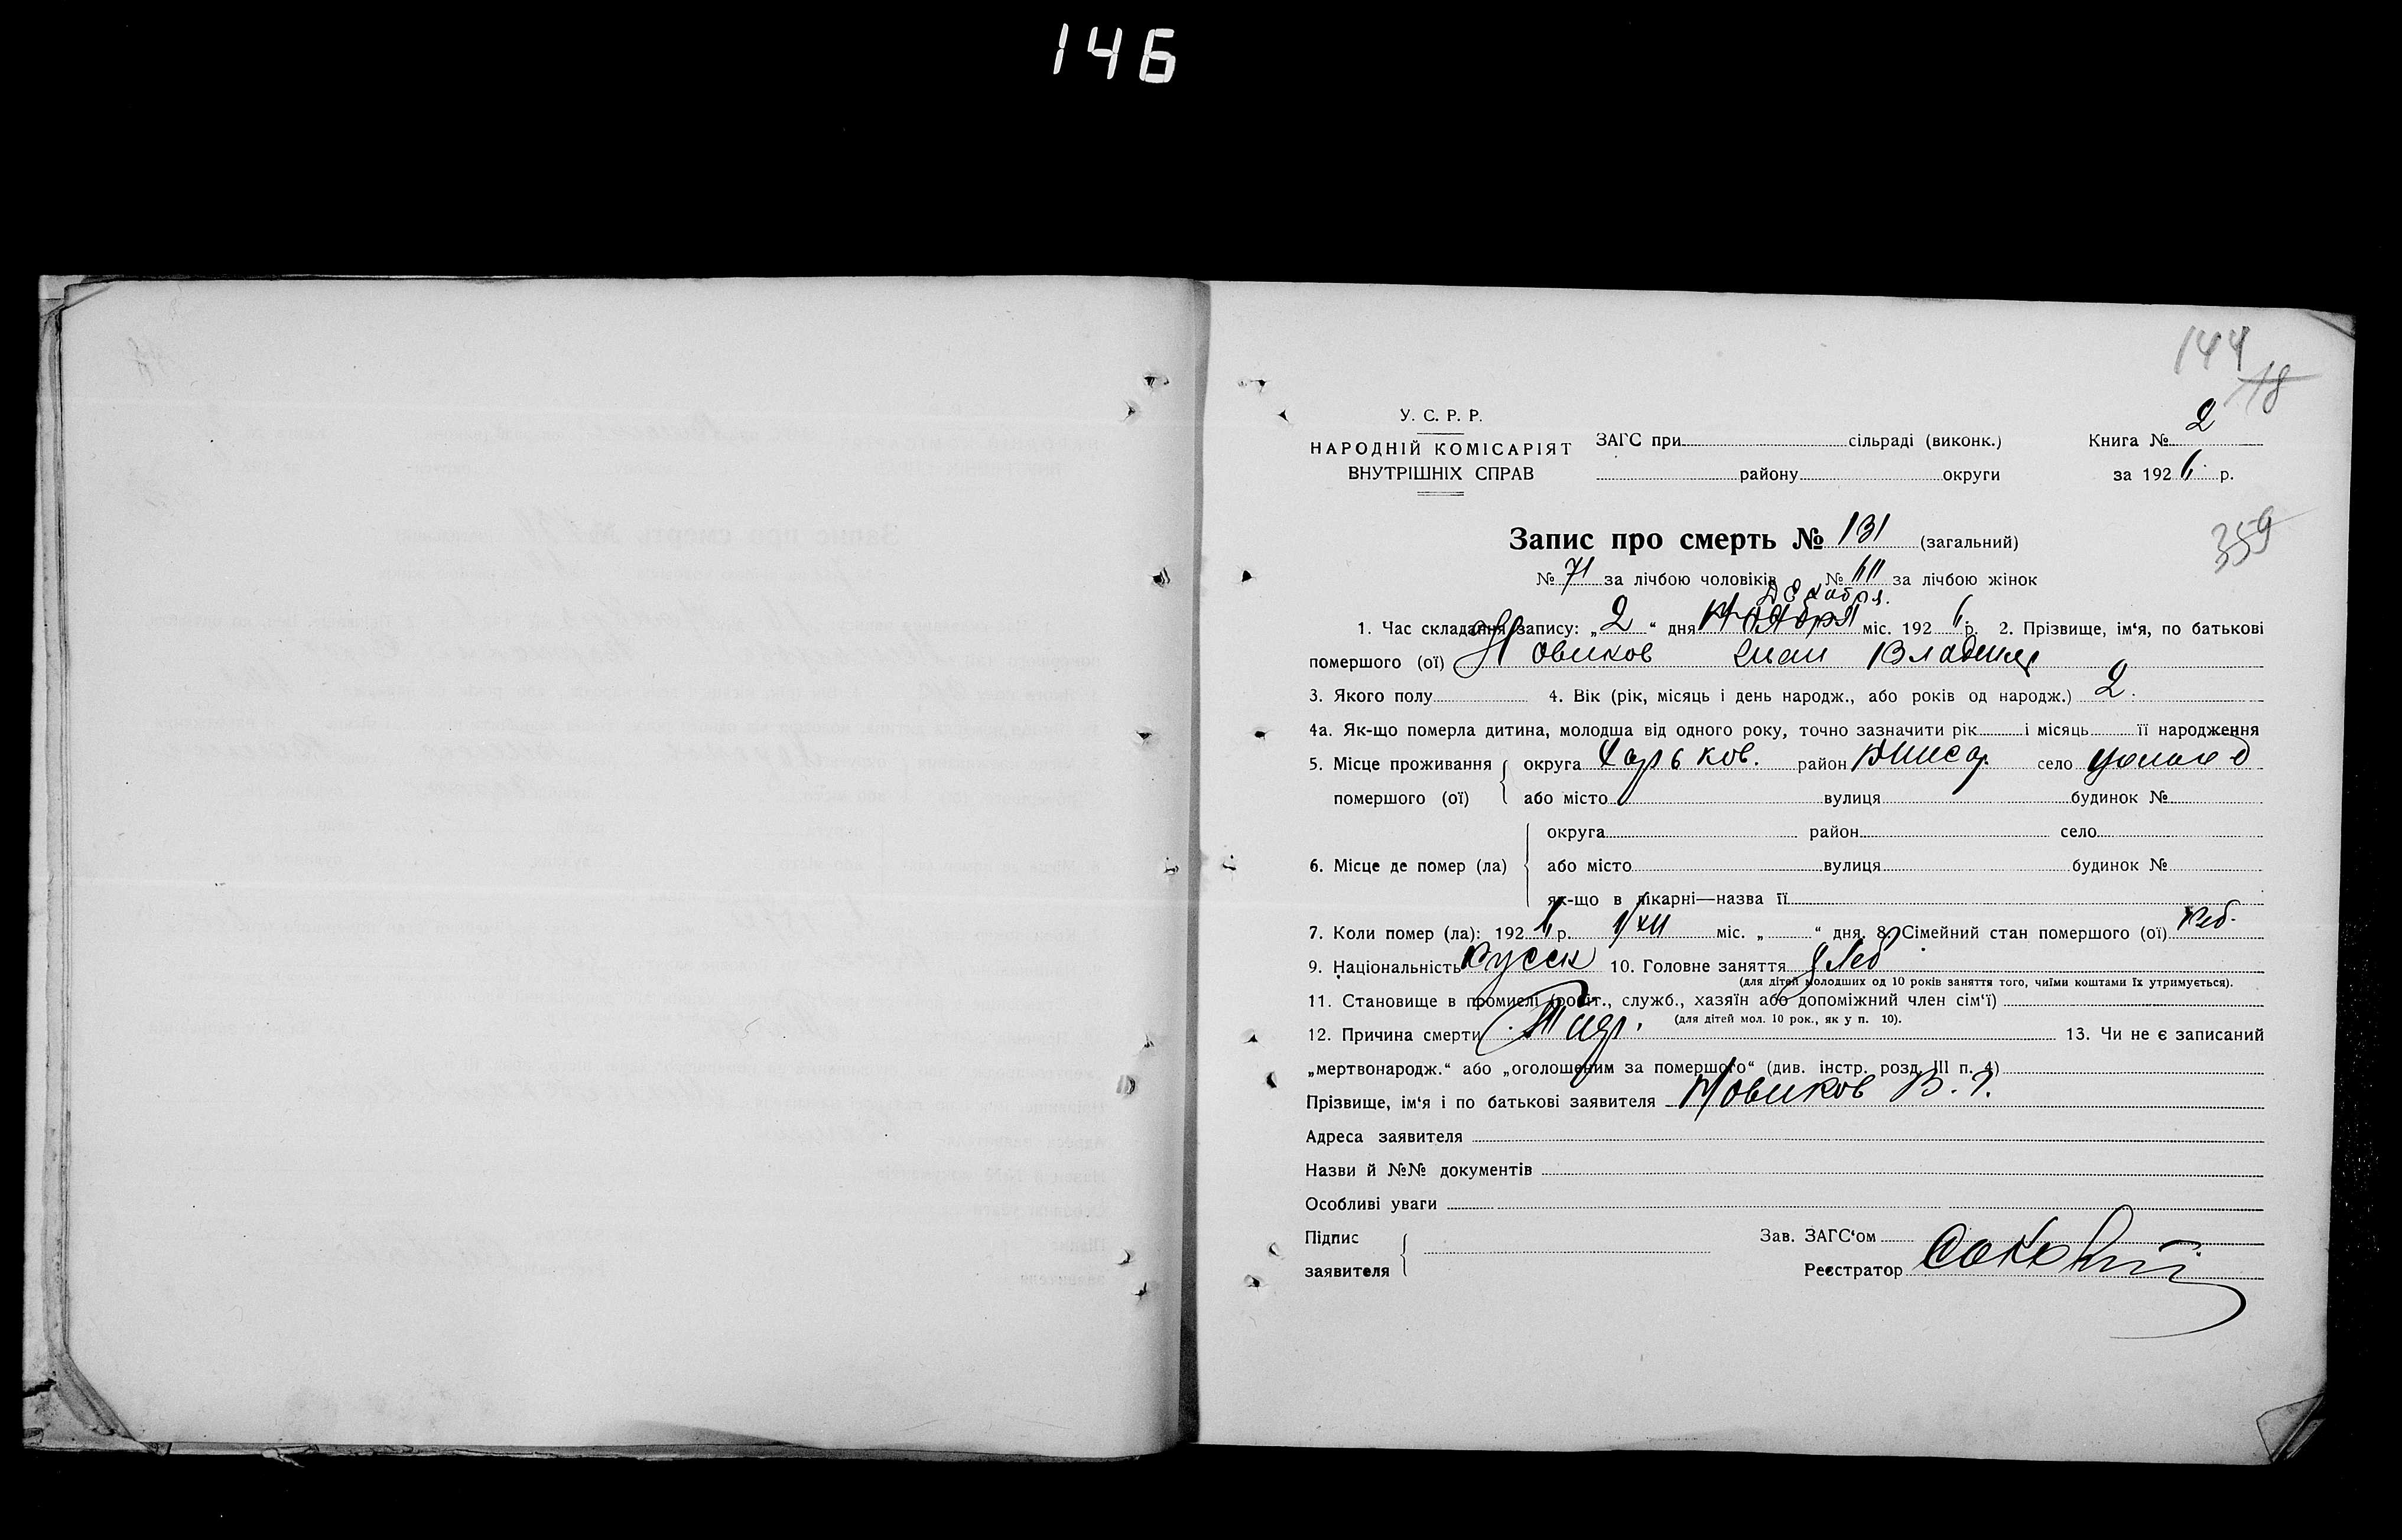 146
144
18
У. С. Р. Р.
НАРОДНІЙ КОМІСАРІЯТ
ВНУТРІШНІХ СПРАВ
ЗАГС при сільраді (виконк.)
району округи
Книга № 2
за 1926 р.
359
Запис про смерть № 131 (загальний)
№ 71 за лічбою чоловіків № за лічбою жінок
Декабря
1. Час складання запису: „2“ дня Ноября міс. 1926 р. 2. Прізвище, ім‘я, по батькові
помершого (ої) Новиков Иван Владими
3. Якого полу 4. Вік (рік, місяць і день народж., або років од народж.) 2.
4а. Як-що померла дитина, молодша від одного року, точно зазначити рік і місяць її народження
5. Місце проживання округа Харьков. район село
помершого (ої) або місто вулиця будинок №
округа район село
6. Місце де помер (ла) або місто вулиця будинок №
як-що в лікарні—назва її
7. Коли помер (ла): 1926 р. 1/XII міс. „ “ дня. 8. Сімейний стан помершого (ої)
9. Національність Русск 10. Головне заняття Хлеб
(для дітей молодших од 10 років заняття того, чиїми коштами їх утримується).
11. Становище в промислі (робіт., служб., хазяїн або допоміжний член сім‘ї)
(для дітей мол. 10 рок., як у п. 10).
12. Причина смерти 13. Чи не є записаний
„мертвонародж.“ або „оголошеним за помершого“ (див. інстр. розд. III п. 4)
Прізвище, ім‘я і по батькові заявителя Новиков В.
Адреса заявителя
Назви й №№ документів
Особливі уваги
Підпис
заявителя
Зав. ЗАГС‘ом
Реєстратор